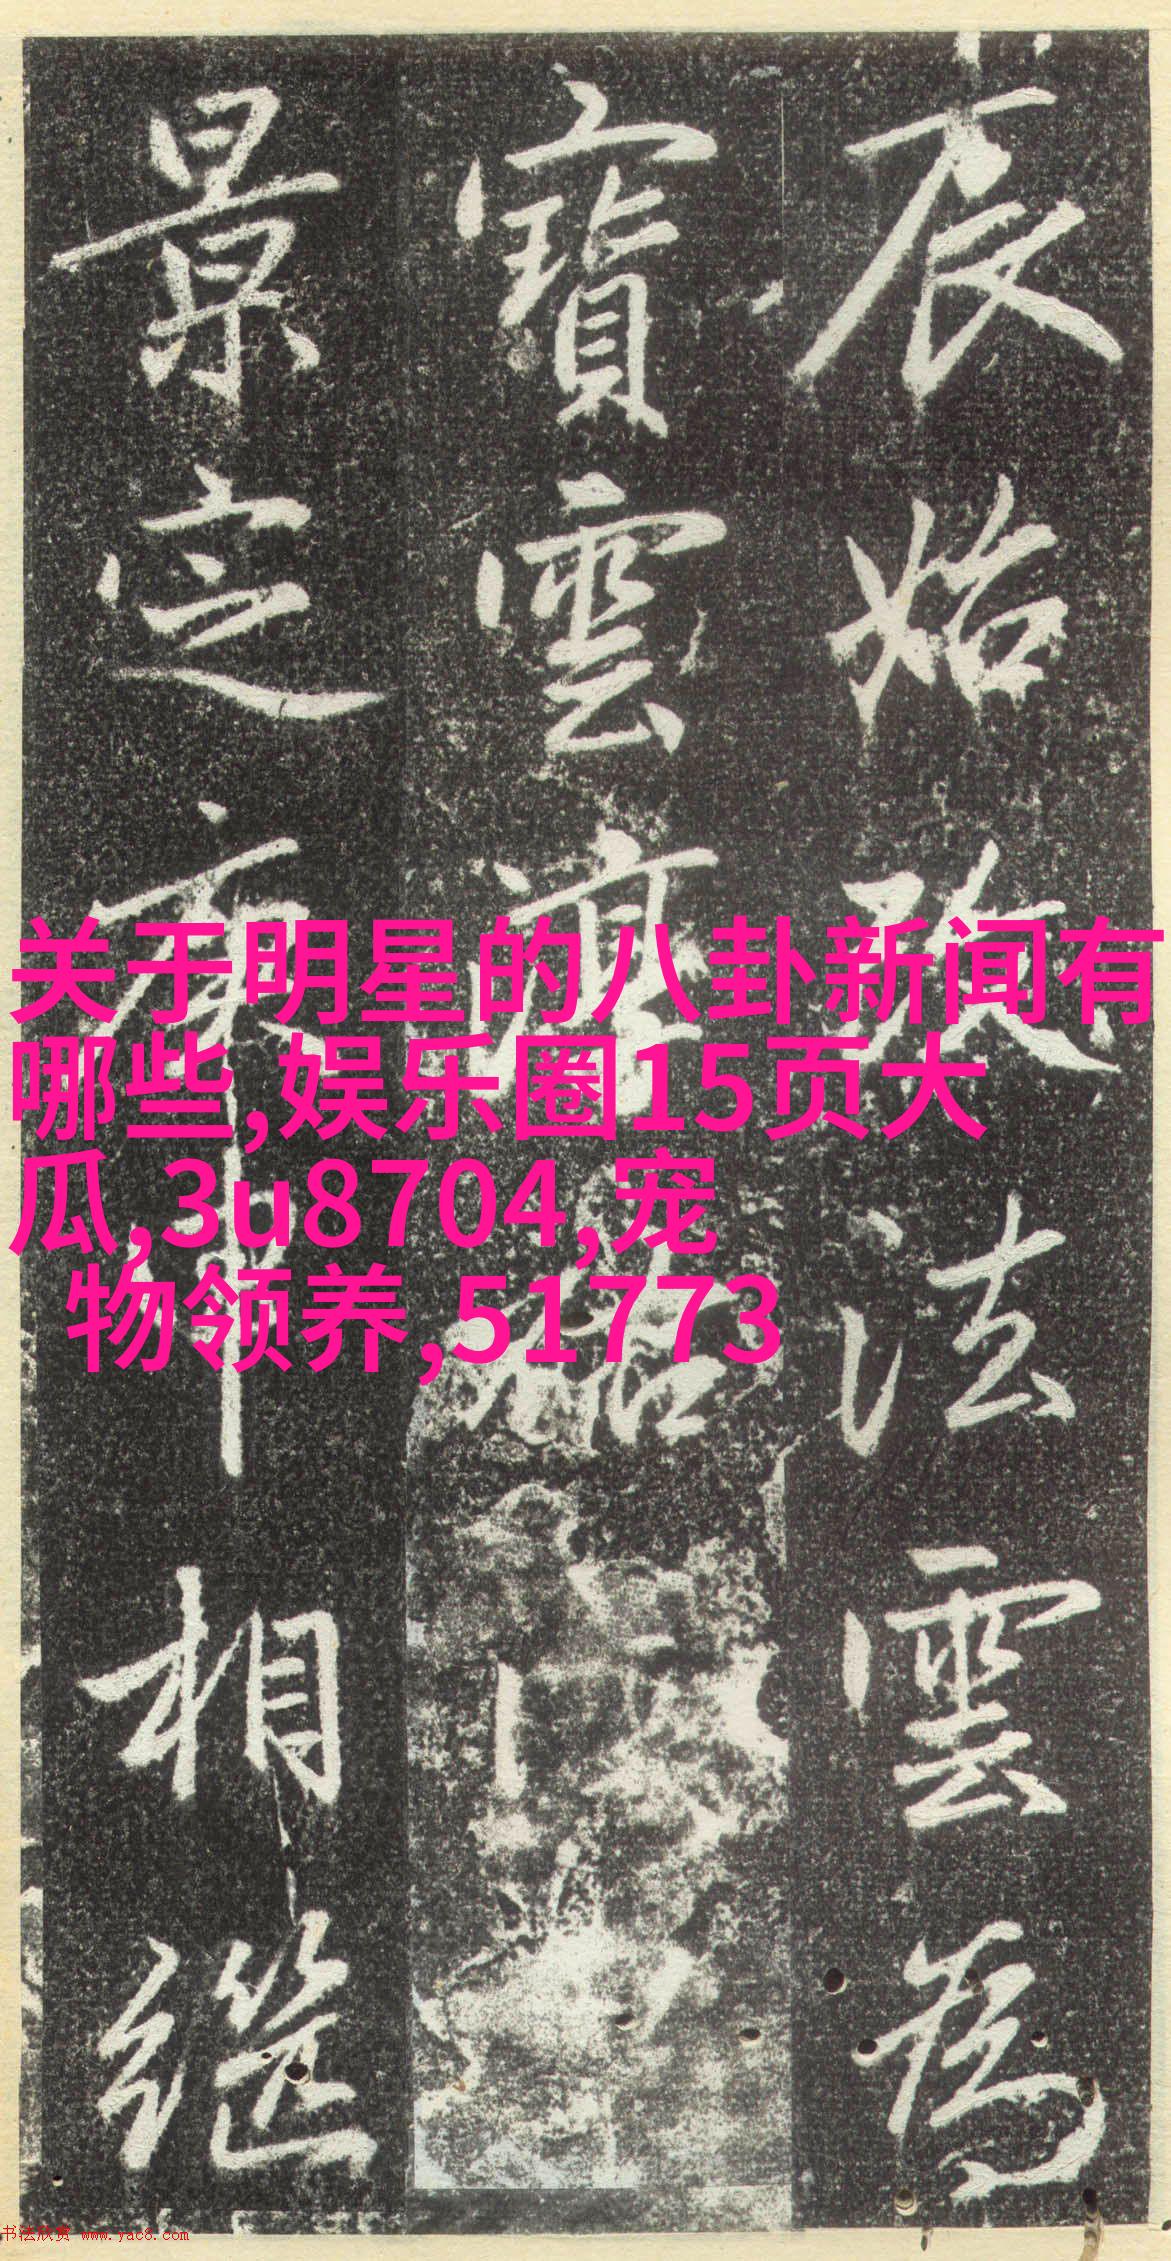 辰始改法雲為
寶雲
景定庚申相繼
关于明星的八卦新闻有
哪些,娱乐圈15页大
瓜,3u8704,宠
物领养,51773
书法欣赏 www.yac8.com